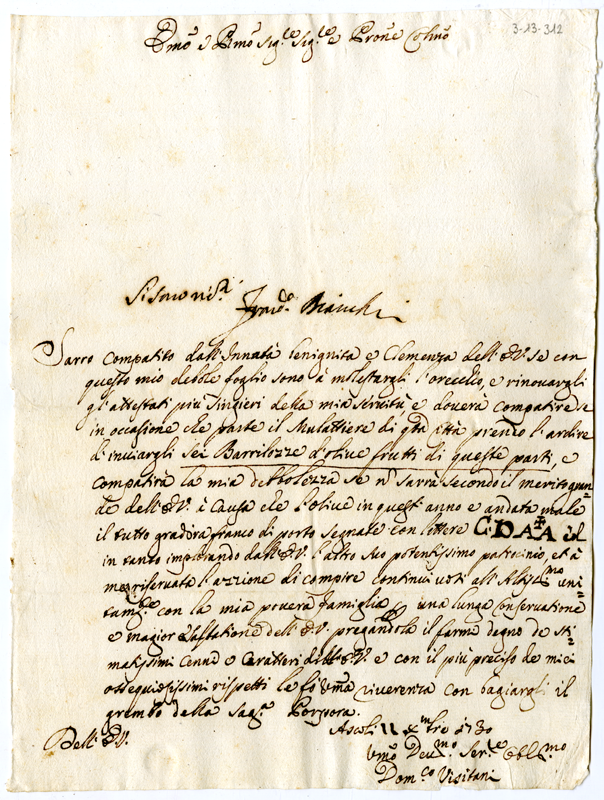 3-13-312
Emo e Rmo Sig.re Sig.re e Prone Colmo
Si sono
Bianchi
Sarrò Compatito dall'Innata benignità e Clemenza dell'E.V. se con
questo mio debole foglio sono à molestargli l'orecchio, e rinovargli
gl'attestati più Sinsieri della mia servitù e doverà compatire se
in occasione che parte il Mulattiere di qta città prendo l'ardire
d'inviargli Sei Barrilozze d'olive frutti di queste parti, e
compatirà la mia debbolezza se n sarrà secondo il merito gran=
de dell'E.V. à Causa che l'olive in quest'anno è andata male
il tutto gradirà franco di porto segnate con lettere C.D.A.A et
in tanto implorando dall'E.V. l'altro suo potentissimo patrocinio, et à
me riservata l'azzione di compire continui voti all'Altis.mo uni=
tam.te con la mia povera famiglia una lunga conservatione
e magior esaltatione dell'E.V. pregandola il farmi degno de sti=
matissimi Cenni e Caratteri dell'E.V. e con il più preciso de miei
ossequiosissimi rispetti le fò riverenza con bagiargli il
grembo della Sag.a Porpora.
Dell'E.V.
Ascoli 11 Xmbre 1730
Umo Devmo Ser.re Obl.mo
Dom.co Visitani